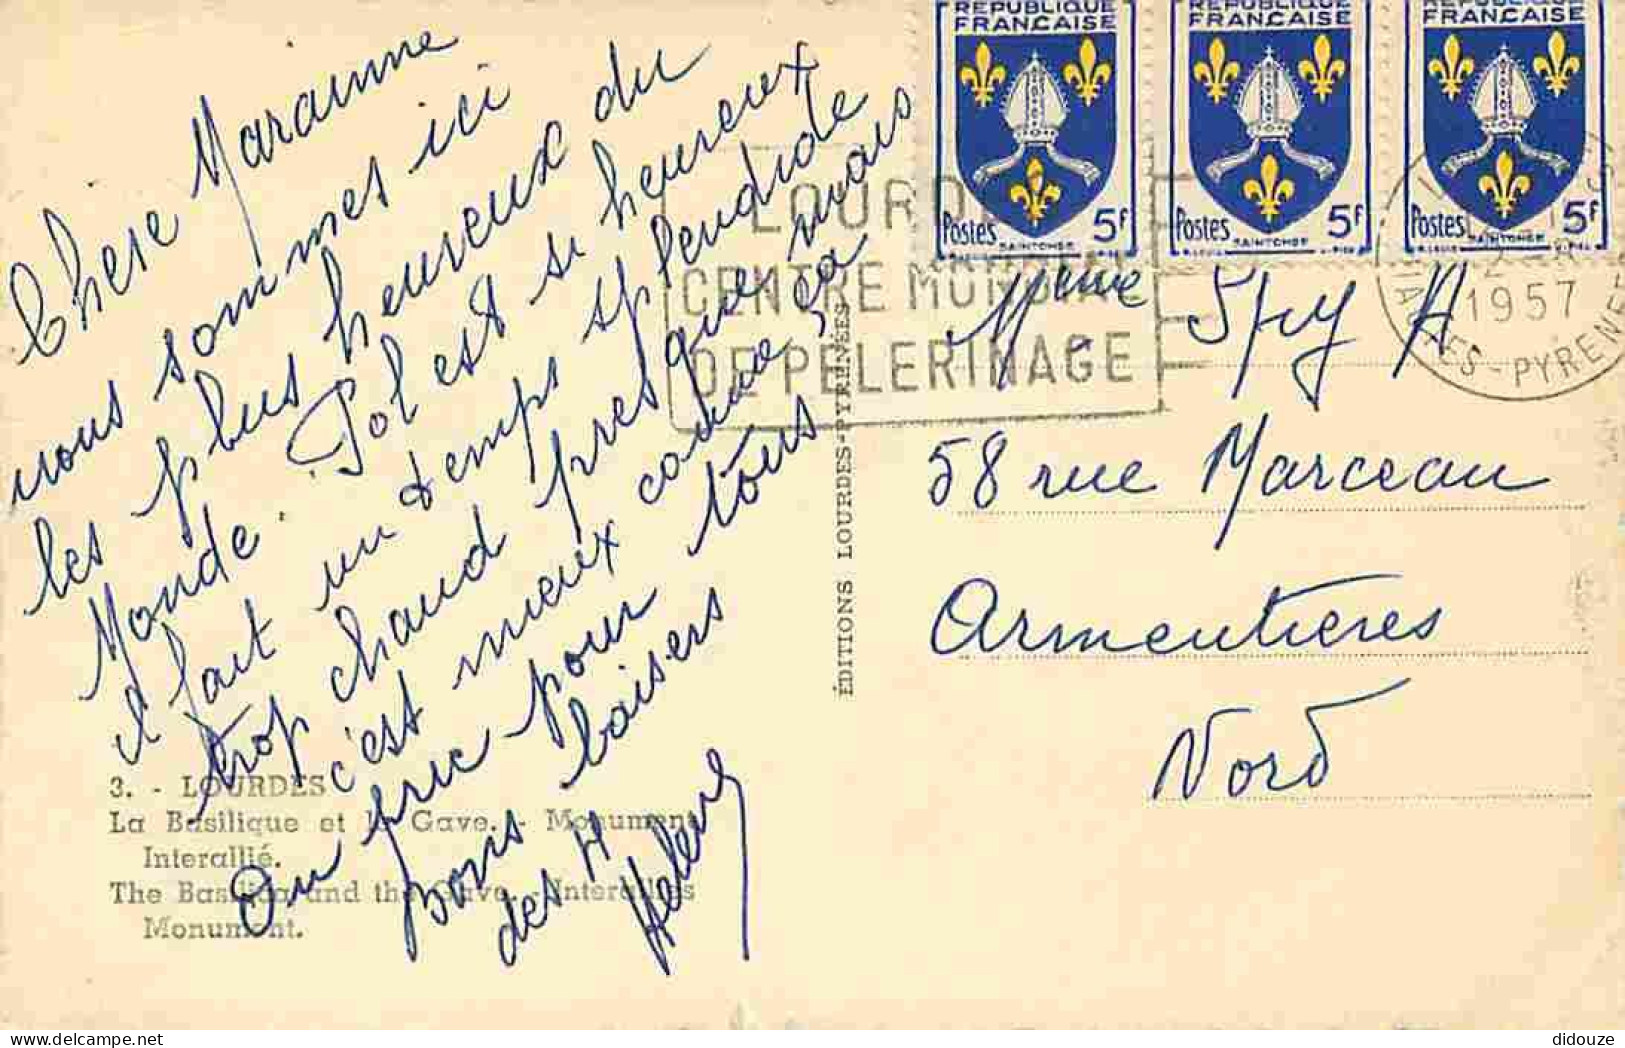 Chere Maraine
nous sommes ici
les plus heureux du
Monde. Pol est si heureux
il fait un temps splendide
trop chaud presque mais
c'est mieux comme ça
On prie pour tous
Bons baisers
des H
Helene
3. - LOURDES
La Basilique et le Gave. - Monument
Interallié.
The Basilica and the Gave. - Interallies
Monument.
ÉDITIONS LOURDES-PYRÉNÉES
REPUBLIQUE
FRANÇAISE
Postes 5F
SAINTONGE
REPUBLIQUE
FRANÇAISE
Postes 5F
SAINTONGE
REPUBLIQUE
FRANÇAISE
Postes 5F
SAINTONGE
LOURDES
CENTRE MONDIAL
DE PELERINAGE
1957
HAUTES-PYRENEES
Meme Spy A.
58 rue Marceau
Armentieres
Nord
didouze